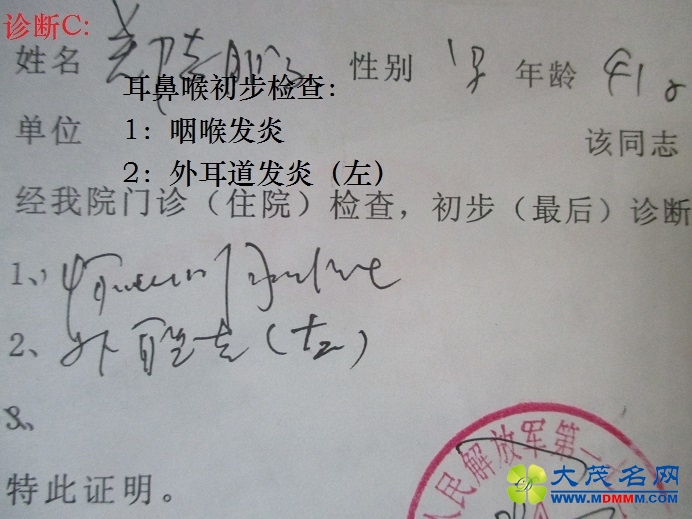 诊断C:
姓名 性别 年龄 41岁
耳鼻喉初步检查:
单位 1: 咽喉发炎 该同志
2: 外耳道发炎 (左)
经我院门诊（住院）检查，初步（最后）诊断
1、
2、外耳道炎(左)
3、
人民解放军第一
特此证明。
大茂名网
WWW.MDMMM.COM